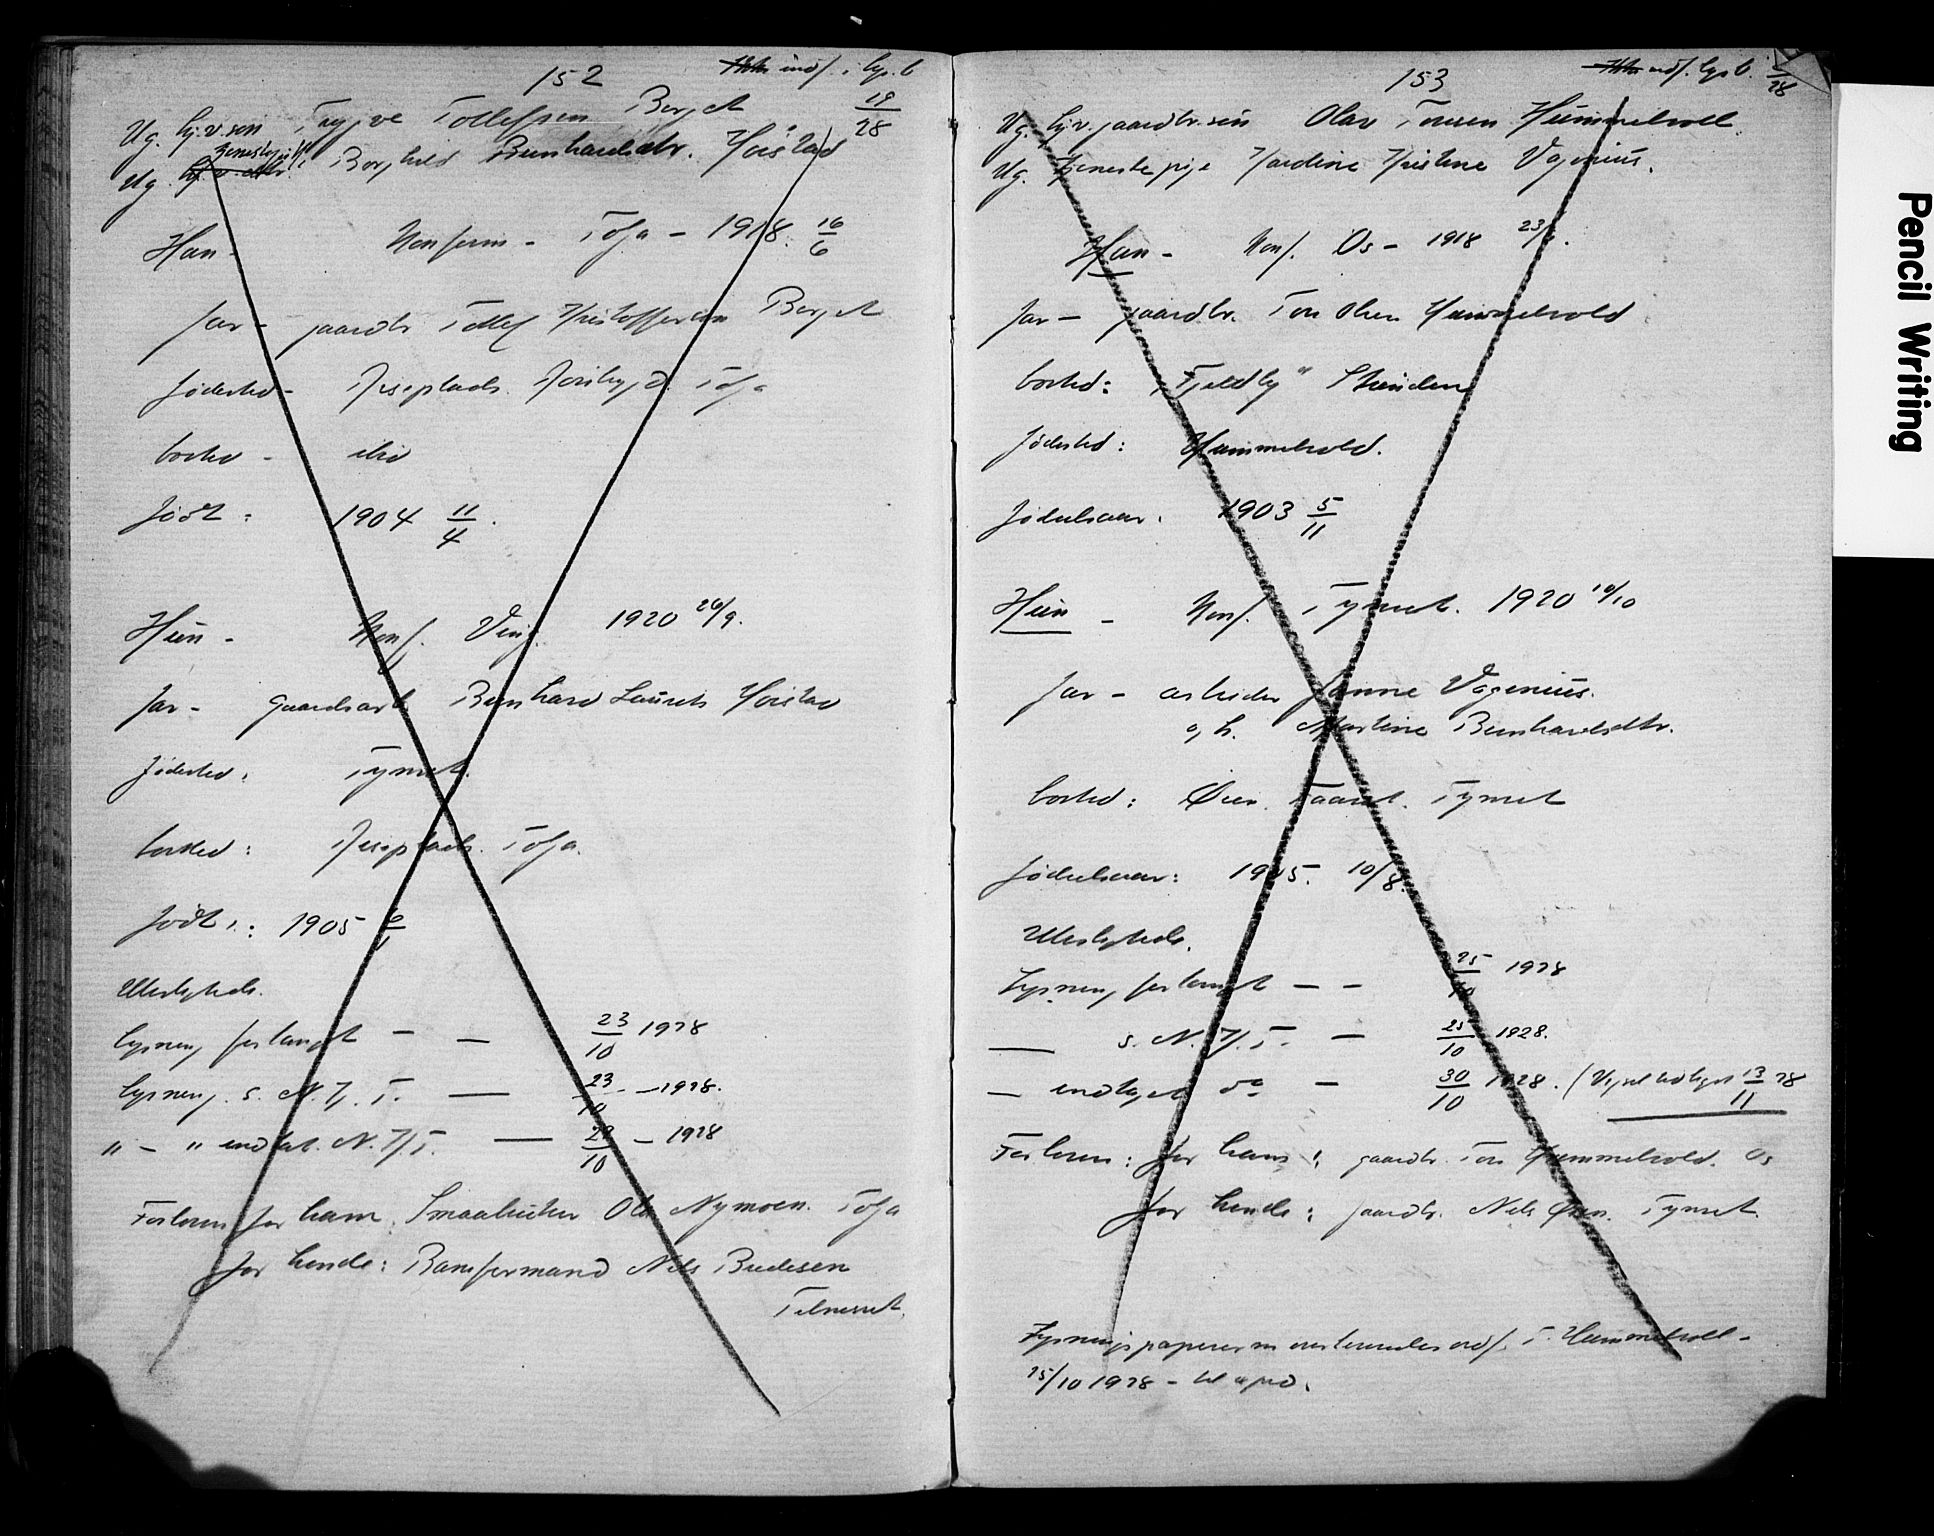 152
indf. i lys.b
19/28
Ug. hjv. søn Trygve Tollefsen Borget
Tjenestepige
Ug. Borghild Bernhardsdtr. Høistad
Han - Konferm - Tolga - 1918. 16/6
Far - gaardbr Tollef Kristoffersen Borget
Fødested - Tolga
bosted - ibid
Født: 1904 11/4.
Hun - Konf. Ving. 1920 26/9.
Far - Gaardsarb Bernhard Laurits Høistad
Fødested: Tynset.
bosted: Tolga.
Født: 1905
Ubeslegtede.
Lysning forlangt — — 23/10 1928
Lysning. s. N. F. T. — 23/10 — 1928.
" — " indtat. N. F. T. — 29/10 — 1928
Forlover for ham: Smaabruker Ole Nymoen. Tolga
for hende: Banformand Nils Bredesen
Telneset.
153
indf. lysb.
28
Ug. hjv. gaardbr.søn Olav Tonsen Hummelvoll.
Ug. Tjenestepige Kristine Vagenius.
Han - Konf. Os - 1918
Far - gaardbr. Ton Olsen Hummelvold
bosted: "Fjeldly"
Fødested: Hummelvold.
Fødselsaar: 1903 5/11
Hun - Konf. Tynset. 1920 10/10
Far - arbeider Vagenius.
o, h. Martine Bernhardsdtr.
bosted: Øien. Tynset
Fødselsaar: 1905. 10/8.
Ubeslegtede.
Lysning forlangt — — 25/10 1928
— s. N. F. T. — 25/10 1928.
— indtaget do — 30/10 1928. ( 13/11 28
Forlover: for ham: gaardbr. Ton Hummelvold. Os
for hende: gaardbr. Nils Øien. Tynset.
Lysningspapererne indf. T. Hummelvoll -
25/10 1928 -
Pencil Writing